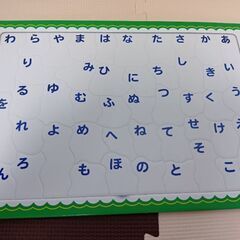 わらやまはなたさかあ
りみひにちしきい
るゆむふぬつすくう
をれよめへねてせけえ
んろもほのとそこ